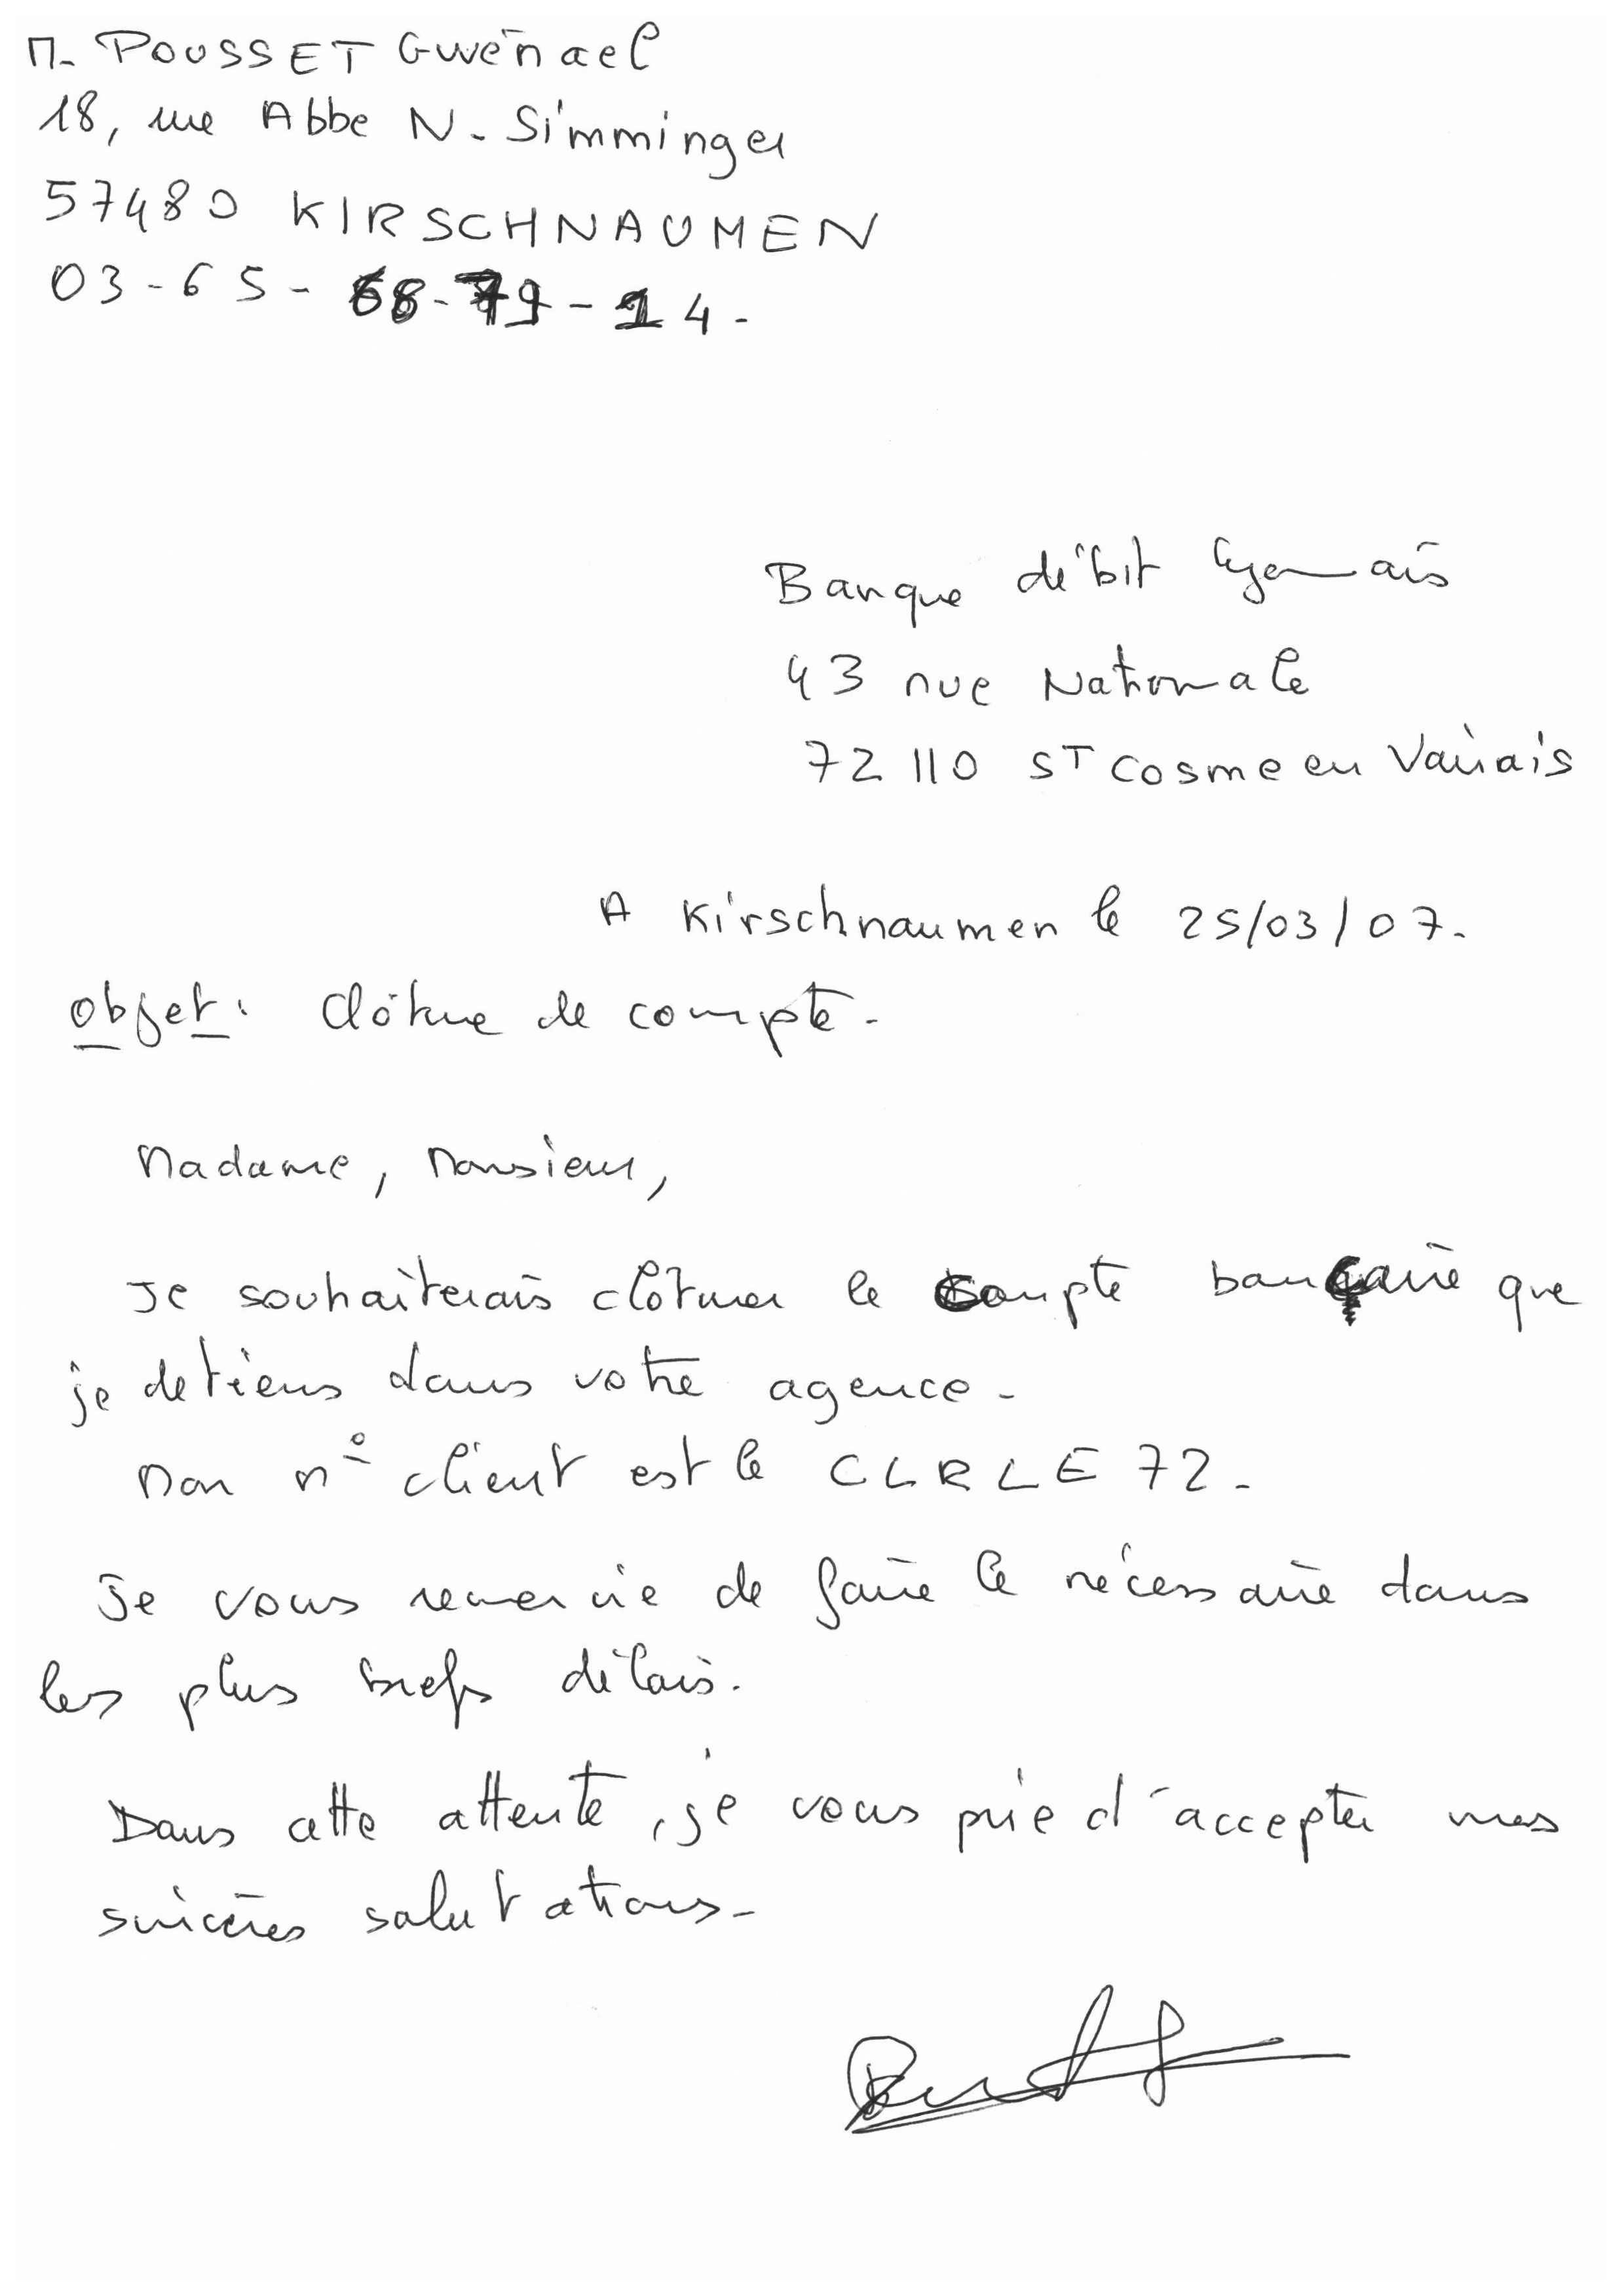 M. POUSSET Gwénael
18, rue Abbe N. Simminger
57480 KIRSCHNAUMEN
03-65-68-79-14.
Banque débit lyonnais
43 rue Nationale
72110 ST Cosme en Vairais
A Kirschnaumen le 25/03/07.
Objet : Clôture de compte.
Madame, Monsieur,
Je souhaiterais clôturer le compte bancaire que
je detiens dans votre agence.
Mon n° client est le CLRLE72.
Je vous remercie de faire le nécessaire dans
les plus brefs délais.
Dans cette attente, je vous prie d'accepter mes
sincères salutations.